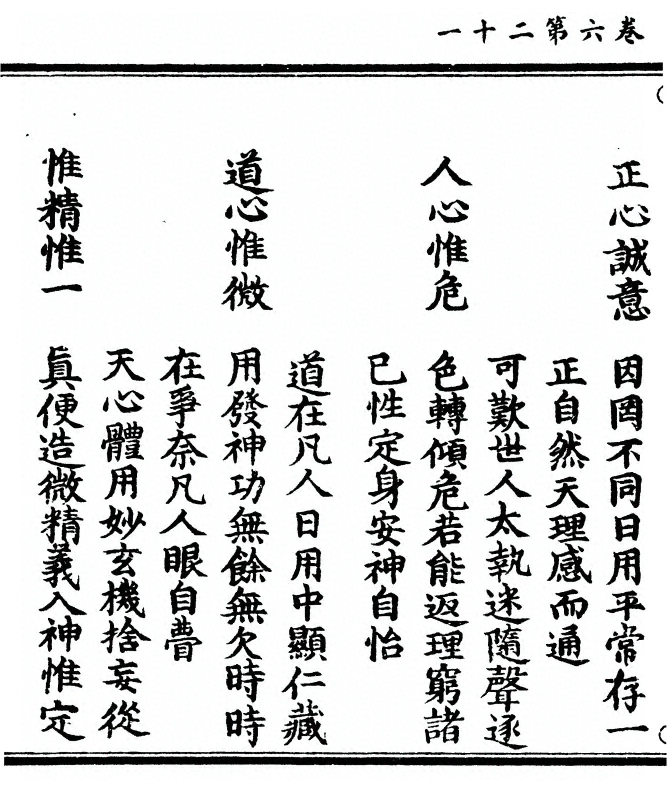 卷六第二十一
正心誠意
因罔不同日用平常存一
正自然天理感而通
人心惟危
可歎世人太執迷隨聲逐
色轉傾危若能返理窮諸
己性定身安神自怡
道心惟微
道在凡人日用中顯仁藏
用發神功無餘無欠時時
在爭奈凡人眼自瞢
惟精惟一
天心體用妙玄機捨妄從
眞便造微精義入神惟定